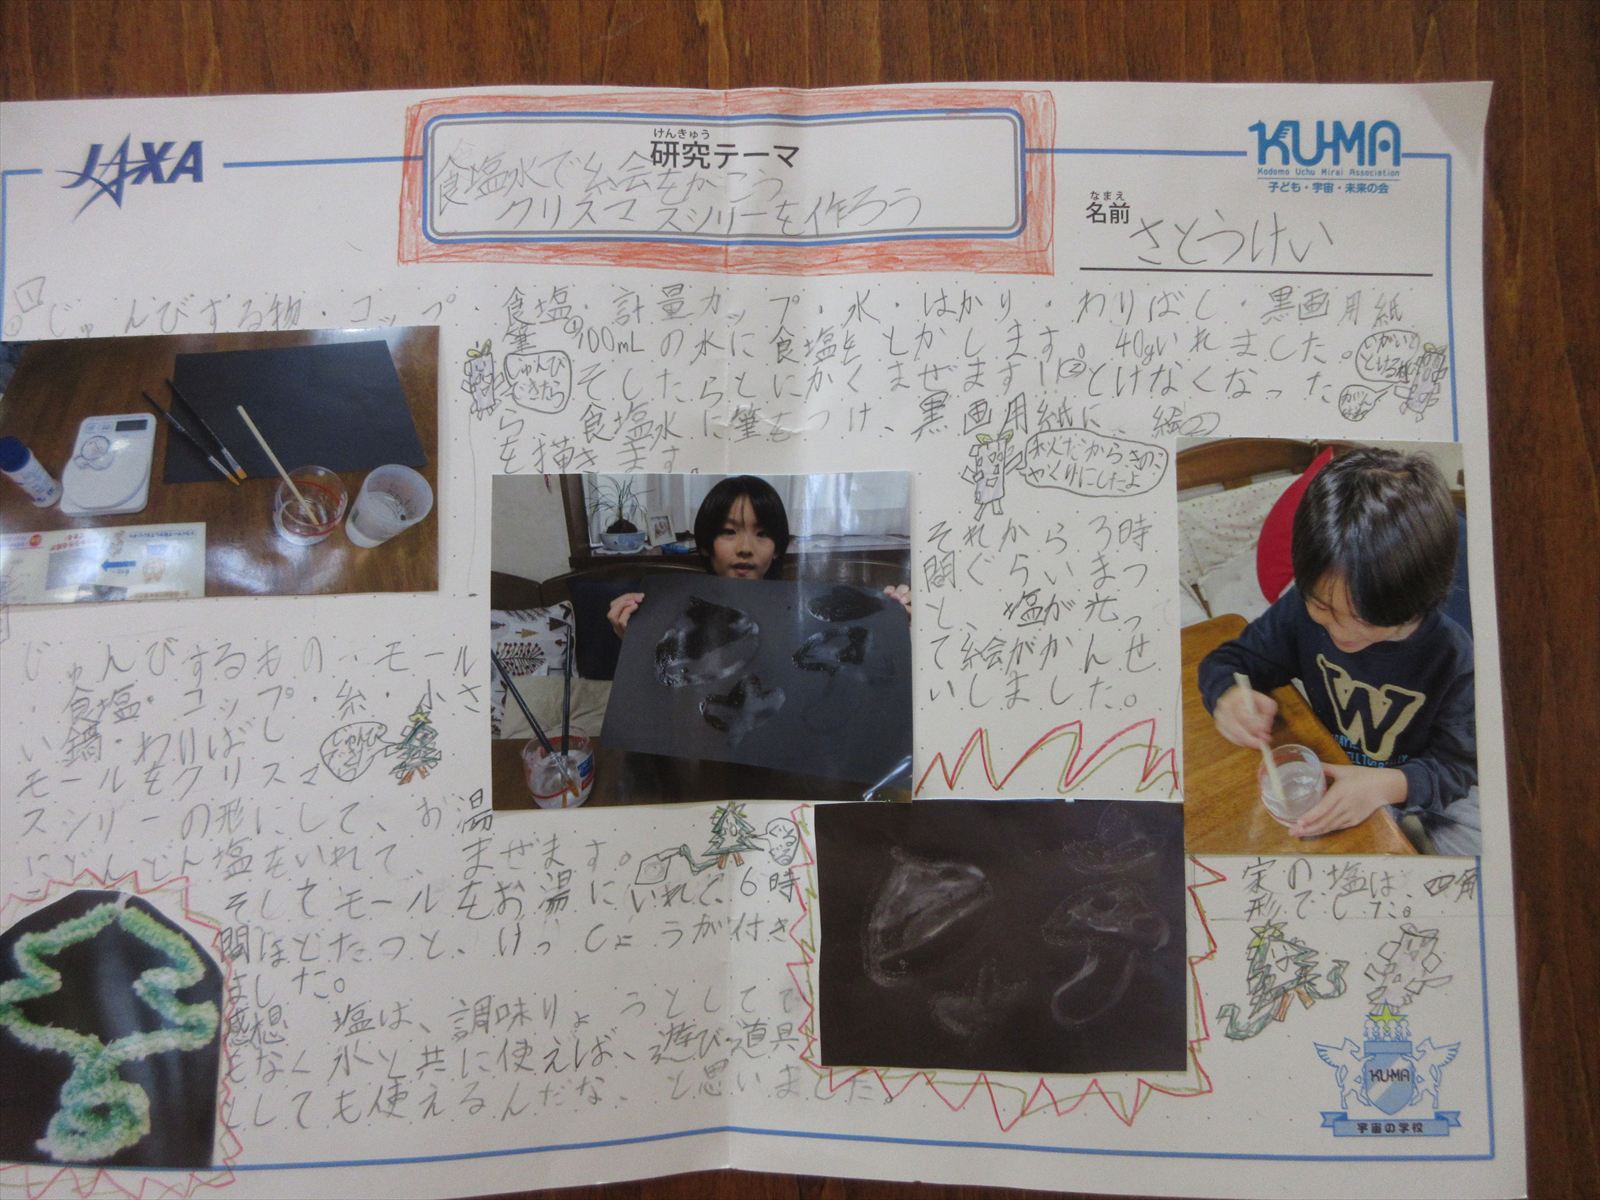 JAXA
けんきゅう
研究テーマ
食塩水で絵をかこう
クリスマスツリーを作ろう
KU-MA
Kodomo Uchu Mirai Association
子ども・宇宙・未来の会
なまえ
名前
さとうけい
1
じゅんびする物・コップ・食塩・計量カップ・水・はかり・わりばし・黒画用紙
筆 ①100mLの水に食塩をとかします。40gいれました。
そしたらとにかくまぜます!!②とけなくなった
ら、食塩水に筆をつけ、黒画用紙に、絵
を描きます。
じゅんび
できたら
いがいと
とけるね
秋だからきのこ
やくりにしたよ
それから3時
間ぐらいまつ
と、塩が光っ
て絵がかんせ
いしました。
じゅんびするもの・モール
・食塩・コップ・糸・小さ
い鍋・わりばし
モールをクリスマ
スツリーの形にして、お湯
にどんどん塩をいれて、まぜます。
そしてモールをお湯にいれて、6時
間ほどたつと、けっしょうが付き
ました。
感想 塩は、調味りょうとしてで
もなく水と共に使えば、遊び道具
としても使えるんだな、と思いました。
家の塩は、四角
形でした。
W
KU-MA
宇宙の学校